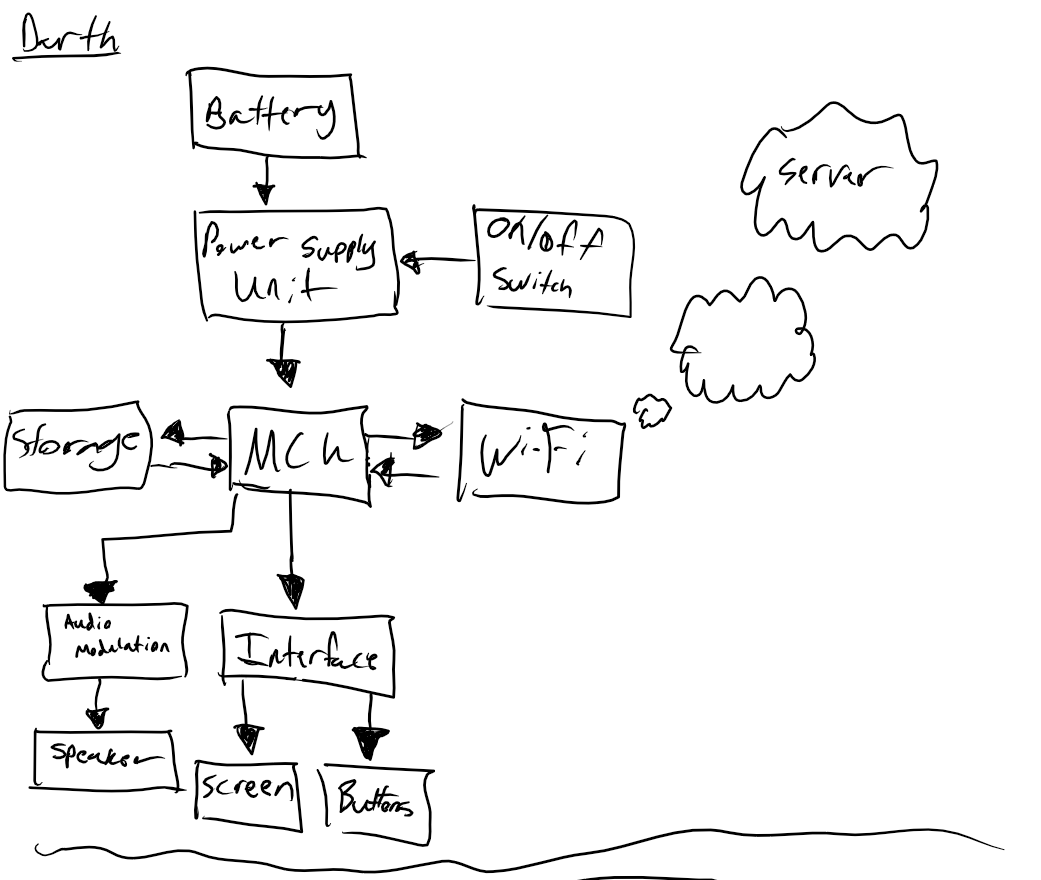 Darth
Battery
Power Supply
Unit
On/off
Switch
Server
Storage
MCU
Wi-Fi
Audio
Modulation
Interface
Speaker
Screen
Buttons